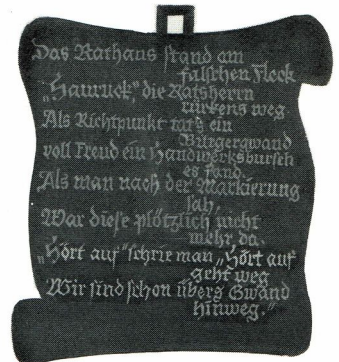 Das Rathaus stand am
falschen Fleck
„Hauruck", die Ratsherrn
rückens weg
Als Richtpunkt ein
Bürgergwand
voll Freud ein Handwerksbursch
es fand.
Als man nach der Markierung
sah,
War diese plötzlich nicht
mehr da.
„Hört auf" schrie man „Hört auf
geht weg
Wir sind schon übers Gwand
hinweg."